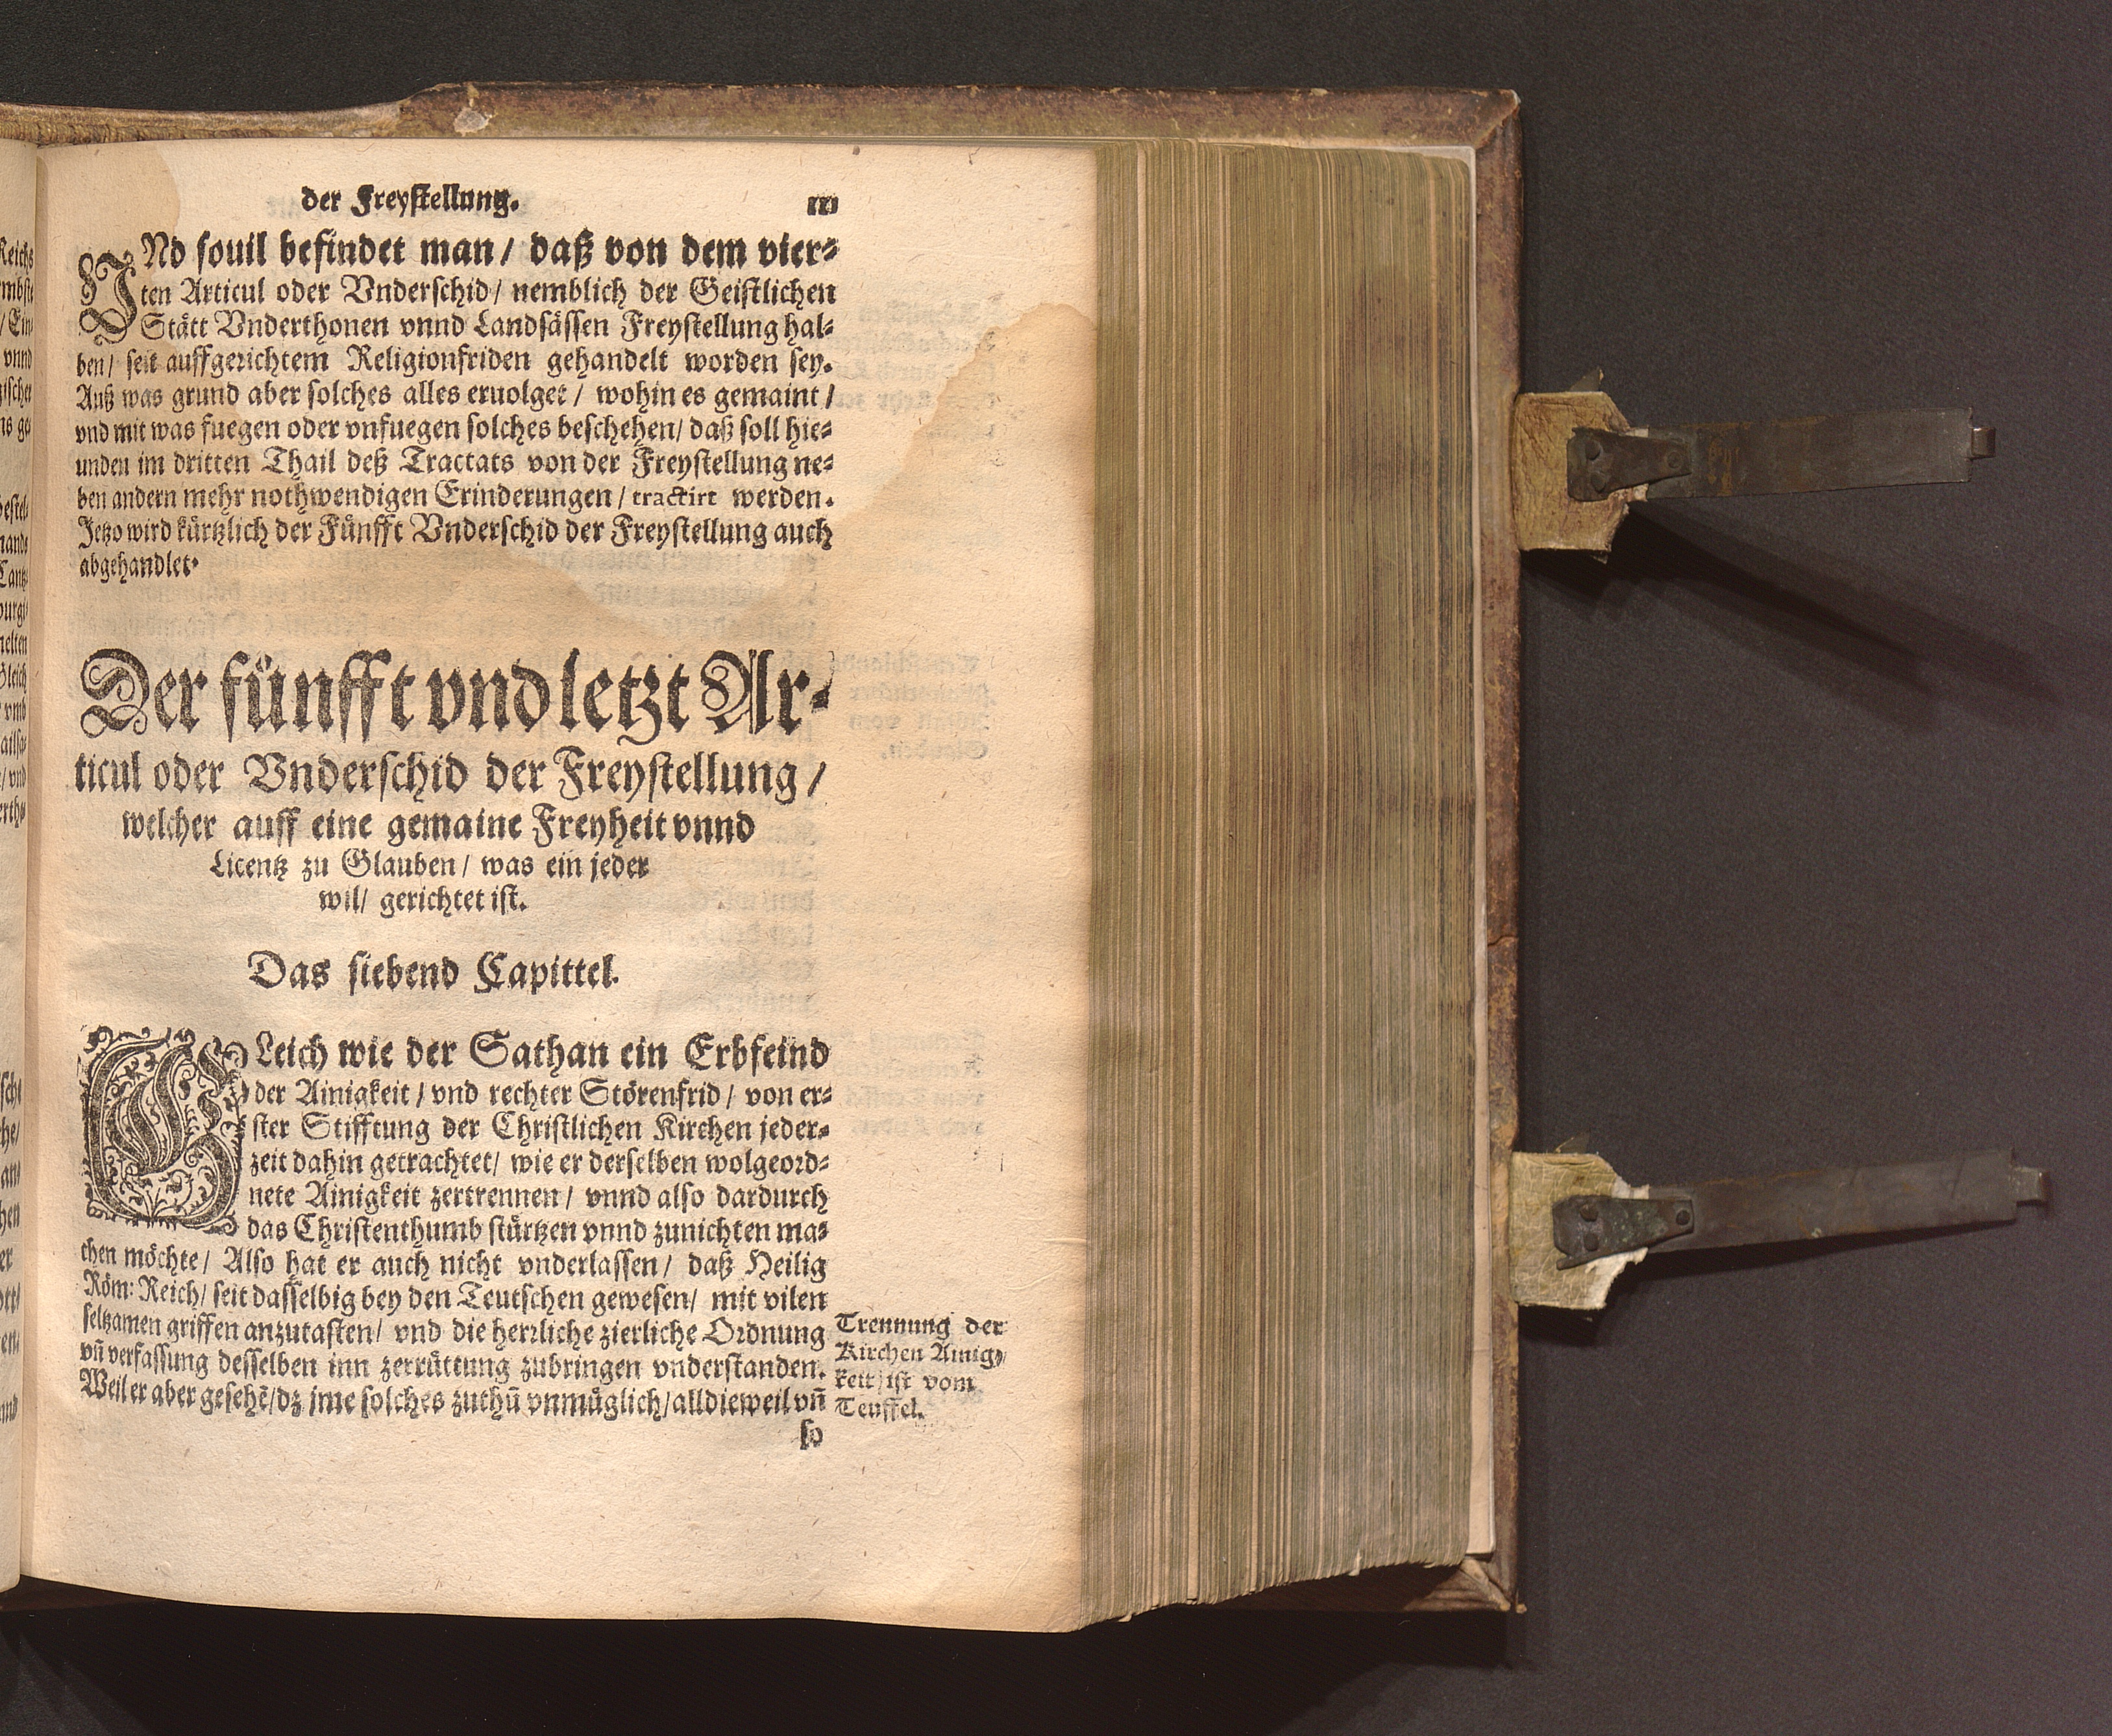 der Freystellung.
111
VNd souil befindet man / daß von dem vier-
ten Articul oder Vnderschid / nemblich der Geistlichen
Stätt Vnderthonen vnnd Landsässen Freystellung hal-
ben / seit auffgerichtem Religionfriden gehandelt worden sey.
Auß was grund aber solches alles eruolget / wohin es gemaint /
vnd mit was fuegen oder vnfuegen solches beschehen / daß soll hie-
unden im dritten Thail deß Tractats von der Freystellung ne-
ben andern mehr nothwendigen Erinderungen / tractirt werden.
Jetzo wird kürtzlich der Fünfft Vnderschid der Freystellung auch
abgehandlet.
Der fünfft vnd letzt Ar-
ticul oder Vnderschid der Freystellung /
welcher auff eine gemaine Freyheit vnnd
Licentz zu Glauben / was ein jeder
wil / gerichtet ist.
Das siebend Capittel.
GLeich wie der Sathan ein Erbfeind
der Ainigkeit / vnd rechter Störenfrid / von er-
ster Stifftung der Christlichen Kirchen jeder-
zeit dahin getrachtet / wie er derselben wolgeord-
nete Ainigkeit zertrennen / vnnd also dardurch
das Christenthumb stürtzen vnnd zunichten ma-
chen möchte / Also hat er auch nicht vnderlassen / daß Heilig
Röm: Reich / seit dasselbig bey den Teutschen gewesen / mit vilen
seltzamen griffen anzutasten / vnd die herrliche zierliche Ordnung
vñ verfassung desselben inn zerrüttung zubringen vnderstanden.
Weil er aber gesehẽ / dz jme solches zuthũ vnmüglich / alldieweil vñ
so
Trennung der
Kirchen Ainig-
keit / ist vom
Teuffel.